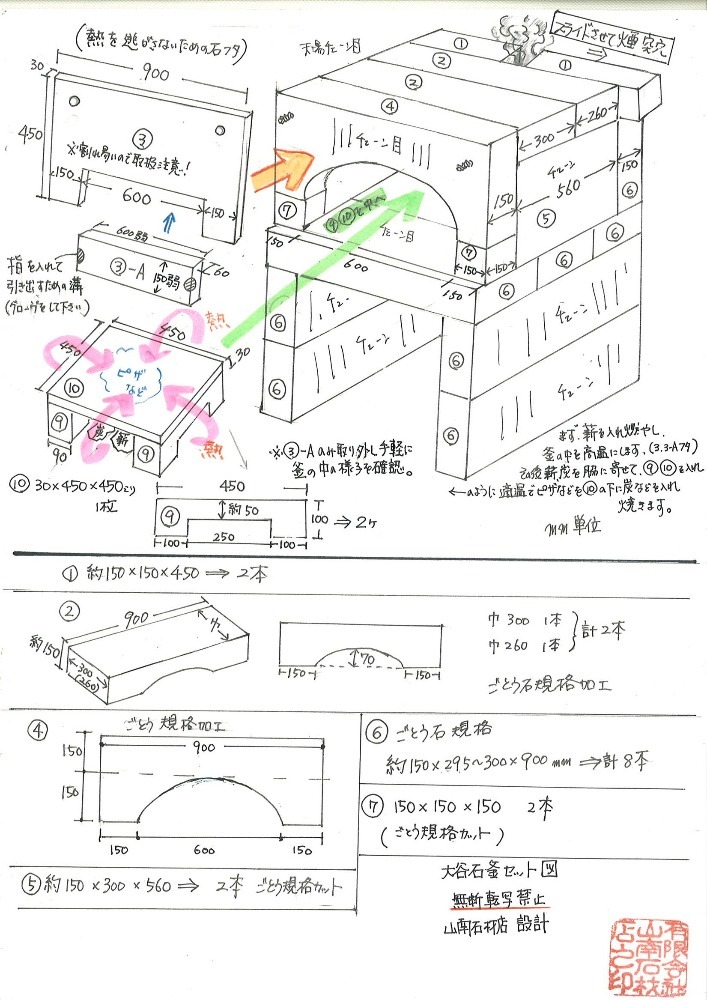 (熱を逃がさないための石フタ)
900
30
450
③
※割れ易いので取扱注意!
150
600
150
600弱
③-A
150弱
60
指を入れて
引き出すための溝
(グローブをして下さい)
450
450
30
熱
ピザ
など
⑩
炭
薪
⑨
⑨
90
熱
⑩ 30×450×450より
1枚
450
⑨
約50
100
100
250
100
⇒2ヶ
天場チェーン目
スライドさせて煙突穴
⇒
①
①
②
②
④
チェーン目
260
300
チェーン
560
150
150
⑤
⑥
⑦
⑨⑩を中へ
チェーン目
⑦
150
150
150
600
150
⑥
⑥
⑥
⑥
チェーン
チェーン
⑥
チェーン
⑥
チェーン
⑥
⑥
※③-Aのみ取り外し手軽に
釜の中の様子を確認。
まず、薪を入れ燃やし、
釜の中を高温にします。(3.3-Aフタ)
その後薪炭を脇に寄せて、⑨⑩を入れ
←のように適温でピザなどを⑩の下に炭などを入れ
焼きます。
mm単位
① 約150×150×450⇒2本
②
900
巾
約150
300
(260)
70
150
150
巾 300 1本
巾 260 1本
計2本
ごとう石規格加工
④
ごとう規格加工
900
150
150
150
600
150
⑤約150×300×560⇒ 2本 ごとう規格カット
⑥ ごとう石規格
約150×295~300×900mm⇒計8本
⑦ 150×150×150 2本
(ごとう規格カット)
大谷石釜セット図
無断転写禁止
山南石材店 設計
有限会社
山南石材
店之印